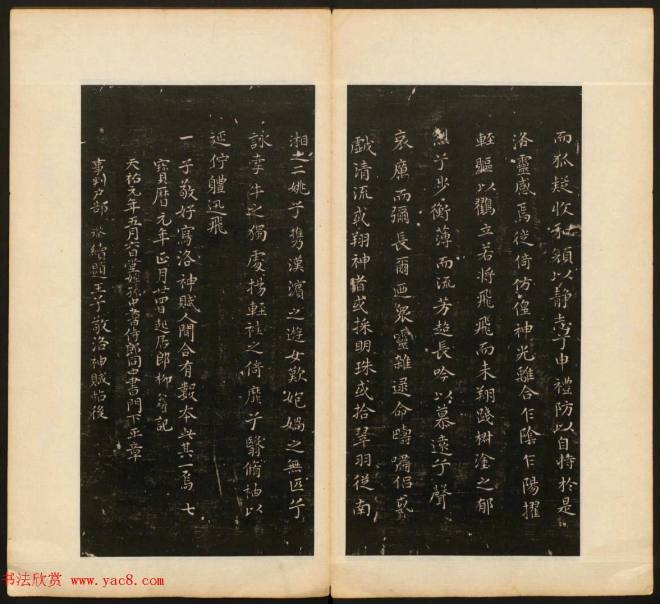 而狐疑收和顏以靜志兮申禮防以自持於是
洛靈感焉徙倚仿偟神光離合乍陰乍陽擢
輕軀以鶴立若將飛飛而未翔踐椒塗之郁
烈兮步衡薄而流芳超長吟以慕遠兮聲
哀厲而彌長爾迺眾靈雜遝命疇嘯侶或
戲清流或翔神渚或採明珠或拾翠羽從南
湘之二姚兮攜漢濱之遊女歎㚿媧之無匹兮
詠牽牛之獨處揚輕袿之倚靡兮翳脩袖以
延佇體迅飛
一子敬好寫洛神賦人間合有數本此其一焉
寶曆元年正月廿四日起居郎柳 記
天祐元年五月 日 中書侍郎同中書門下平章
事判戶部 續題王子敬洛神賦帖後
七
书法欣赏 www.yac8.com